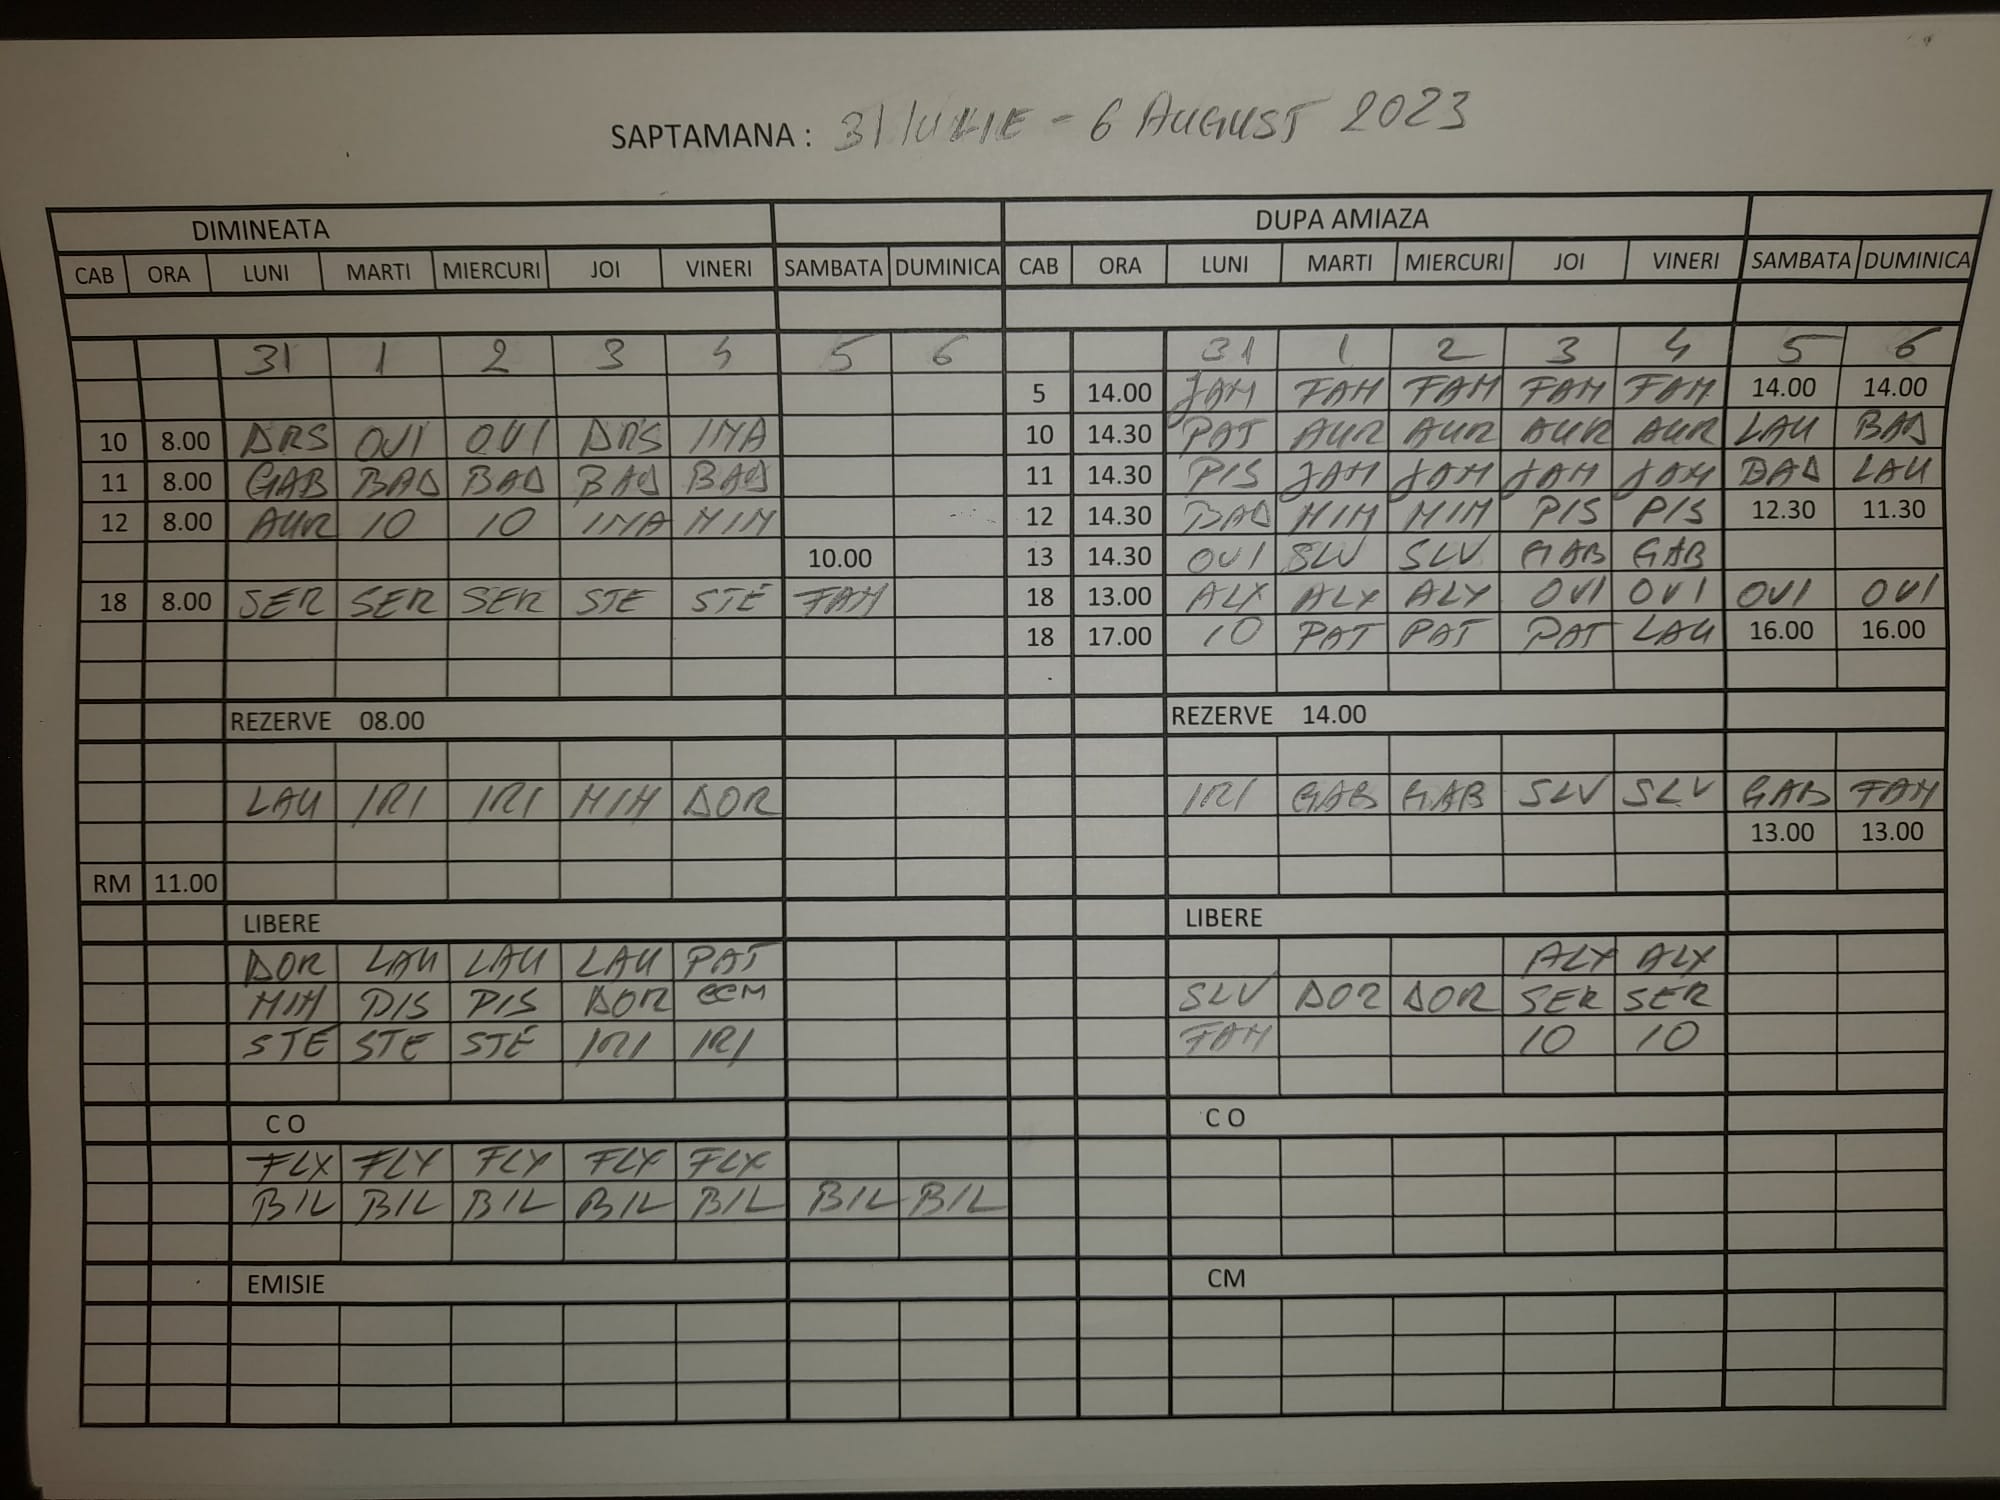 SAPTAMANA : 31 IULIE - 6 AUGUST 2023
DIMINEATA DUPA AMIAZA
CAB ORA LUNI MARTI MIERCURI JOI VINERI SAMBATA DUMINICA CAB ORA LUNI MARTI MIERCURI JOI VINERI SAMBATA DUMINICA
31 1 2 3 4 5 6 31 1 2 3 4 5 6
5 14.00 JAM FAM FAM FAM FAM 14.00 14.00
10 8.00 DRS OVI OVI DRS INA 10 14.30 PAT AUR AUR AUR AUR LAU BAD
11 8.00 GAB BAD BAD BAD BAD 11 14.30 PIS JAM JAM JAM JAM BAD LAU
12 8.00 AUR IO IO INA MIM 12 14.30 BAD MIM MIM PIS PIS 12.30 11.30
10.00 13 14.30 OVI SLV SLV GAB GAB
18 8.00 SER SER SER STE STE FAM 18 13.00 ALX ALX ALX OVI OVI OVI OVI
18 17.00 IO PAT PAT PAT LAU 16.00 16.00
REZERVE 08.00 REZERVE 14.00
LAU IRI IRI MIM DOR IRI GAB GAB SLV SLV GAB FAM
13.00 13.00
RM 11.00
LIBERE LIBERE
DOR LAU LAU LAU PAT ALX ALX
MIM PIS PIS DOR CCM SLV DOR DOR SER SER
STE STE STE IRI IRI FAM IO IO
C O C O
FLX FLX FLX FLX FLX
BIL BIL BIL BIL BIL BIL BIL
EMISIE CM